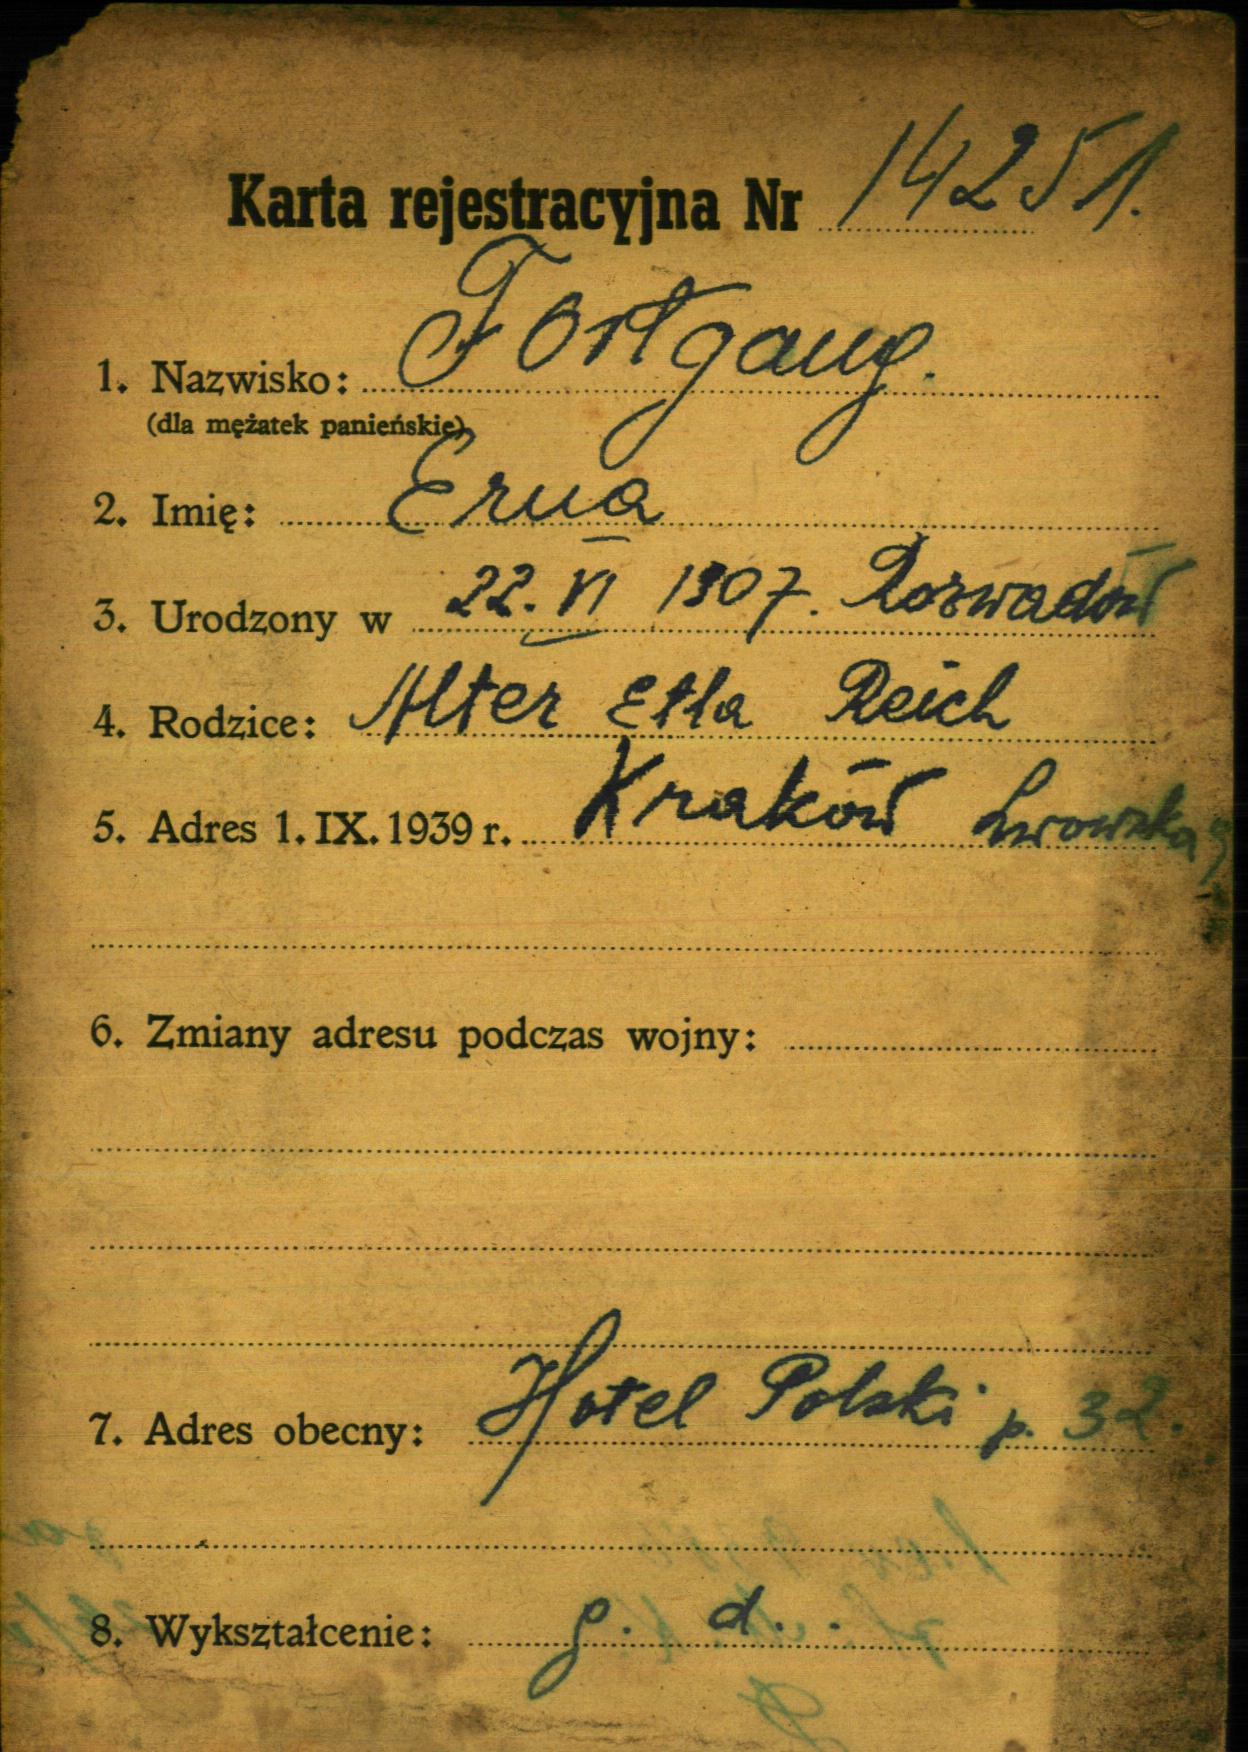 Karta rejestracyjna Nr 14251.
1. Nazwisko: Fortgang.
(dla mężatek panieńskie)
2. Imię: Erna
3. Urodzony w 22. VI 1907. Rozwadów
4. Rodzice: Alter Etla Reich
5. Adres 1. IX. 1939 r. Kraków Lwowska
6. Zmiany adresu podczas wojny:
7. Adres obecny: Hotel Polski p. 32.
8. Wykształcenie: g. d.